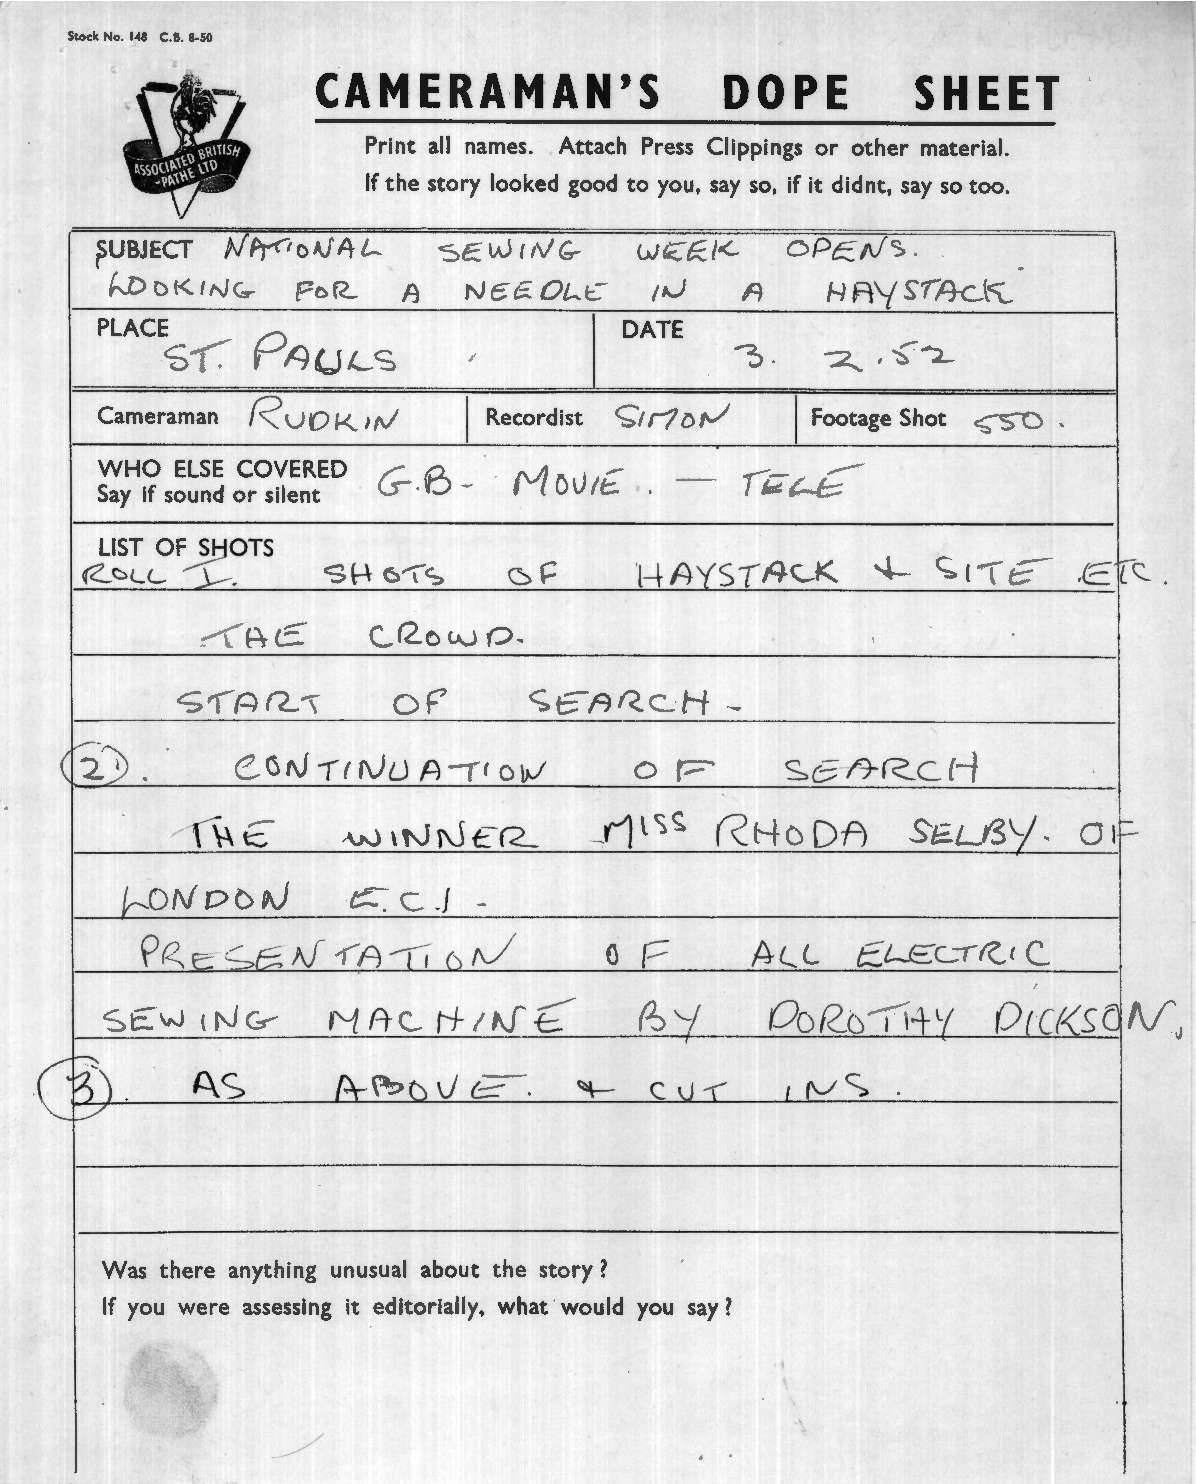 Stock No. 148 C.B. 8-50
ASSOCIATED BRITISH
-PATHE LTD
CAMERAMAN'S DOPE SHEET
Print all names. Attach Press Clippings or other material.
If the story looked good to you, say so, if it didnt, say so too.
SUBJECT NATIONAL SEWING WEEK OPENS.
LOOKING FOR A NEEDLE IN A HAYSTACK
PLACE ST. PAULS DATE 3. 2.52
Cameraman RUDKIN Recordist SIMON Footage Shot 550.
WHO ELSE COVERED
Say if sound or silent G.B- MOVIE. — TELE
LIST OF SHOTS
ROLL I. SHOTS OF HAYSTACK & SITE ETC.
THE CROWD.
START OF SEARCH -
2. CONTINUATION OF SEARCH
THE WINNER MISS RHODA SELBY. OF
LONDON E.C.1 -
PRESENTATION OF ALL ELECTRIC
SEWING MACHINE BY DOROTHY DICKSON,
3. AS ABOVE. & CUT INS.
Was there anything unusual about the story?
If you were assessing it editorially, what would you say?